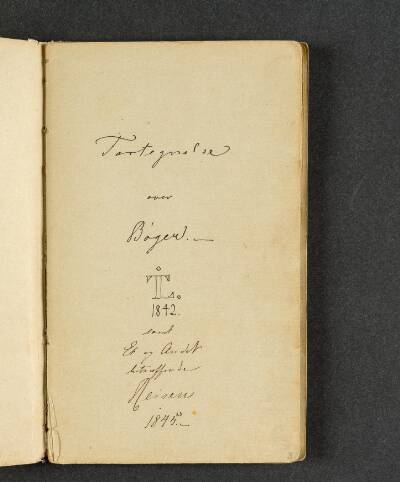 Fortegnelse
over
Bøger.
TL.
1842.
samt
Et og Andet
betræffende
Reisen
1845.